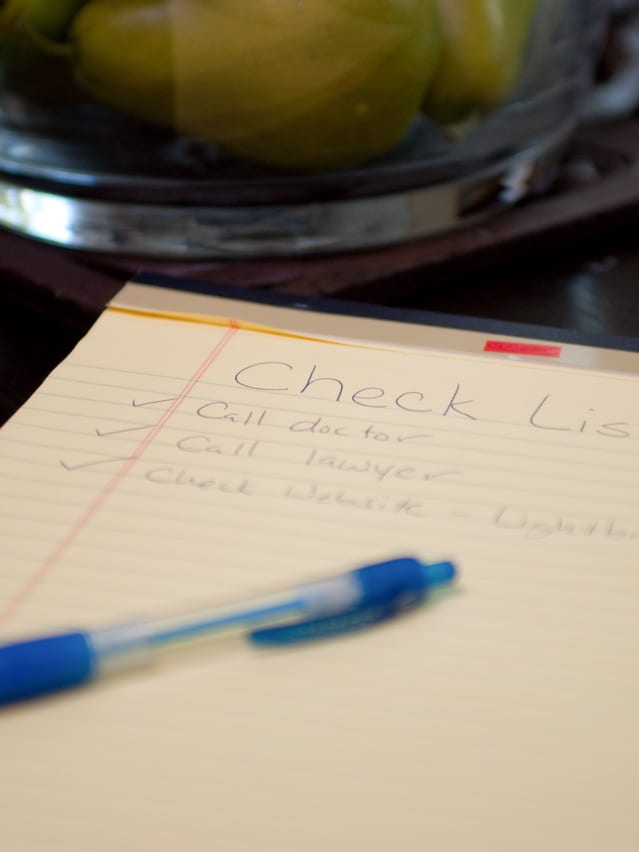 Check Lis
✓ Call doctor
✓ Call lawyer
✓ Check Website - Lightb